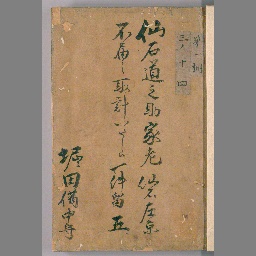 仙石道之助家老仙石左京
不届之取計いたし候一件留 五
堀田備中守
三ノ十四